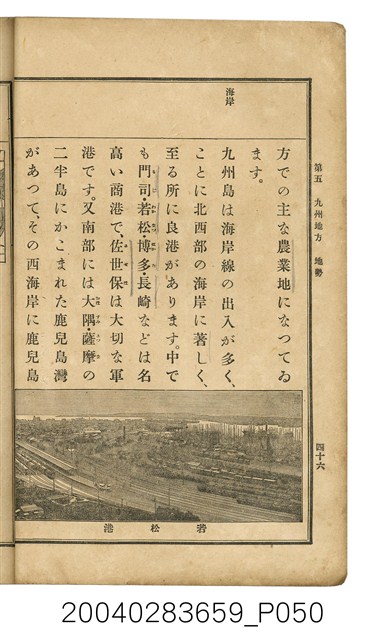 第五 九州地方 地勢
四十六
海岸
方での主な農業地になつてゐ
ます。
九州島は海岸線の出入が多く、
ことに北西部の海岸に著しく、
至る所に良港があります。中で
も門司・若松・博多・長崎などは名
高い商港で、佐世保は大切な軍
港です。又南部には大隅・薩摩の
二半島にかこまれた鹿兒島灣
があつて、その西海岸に鹿兒島
若松港
20040283659_P050